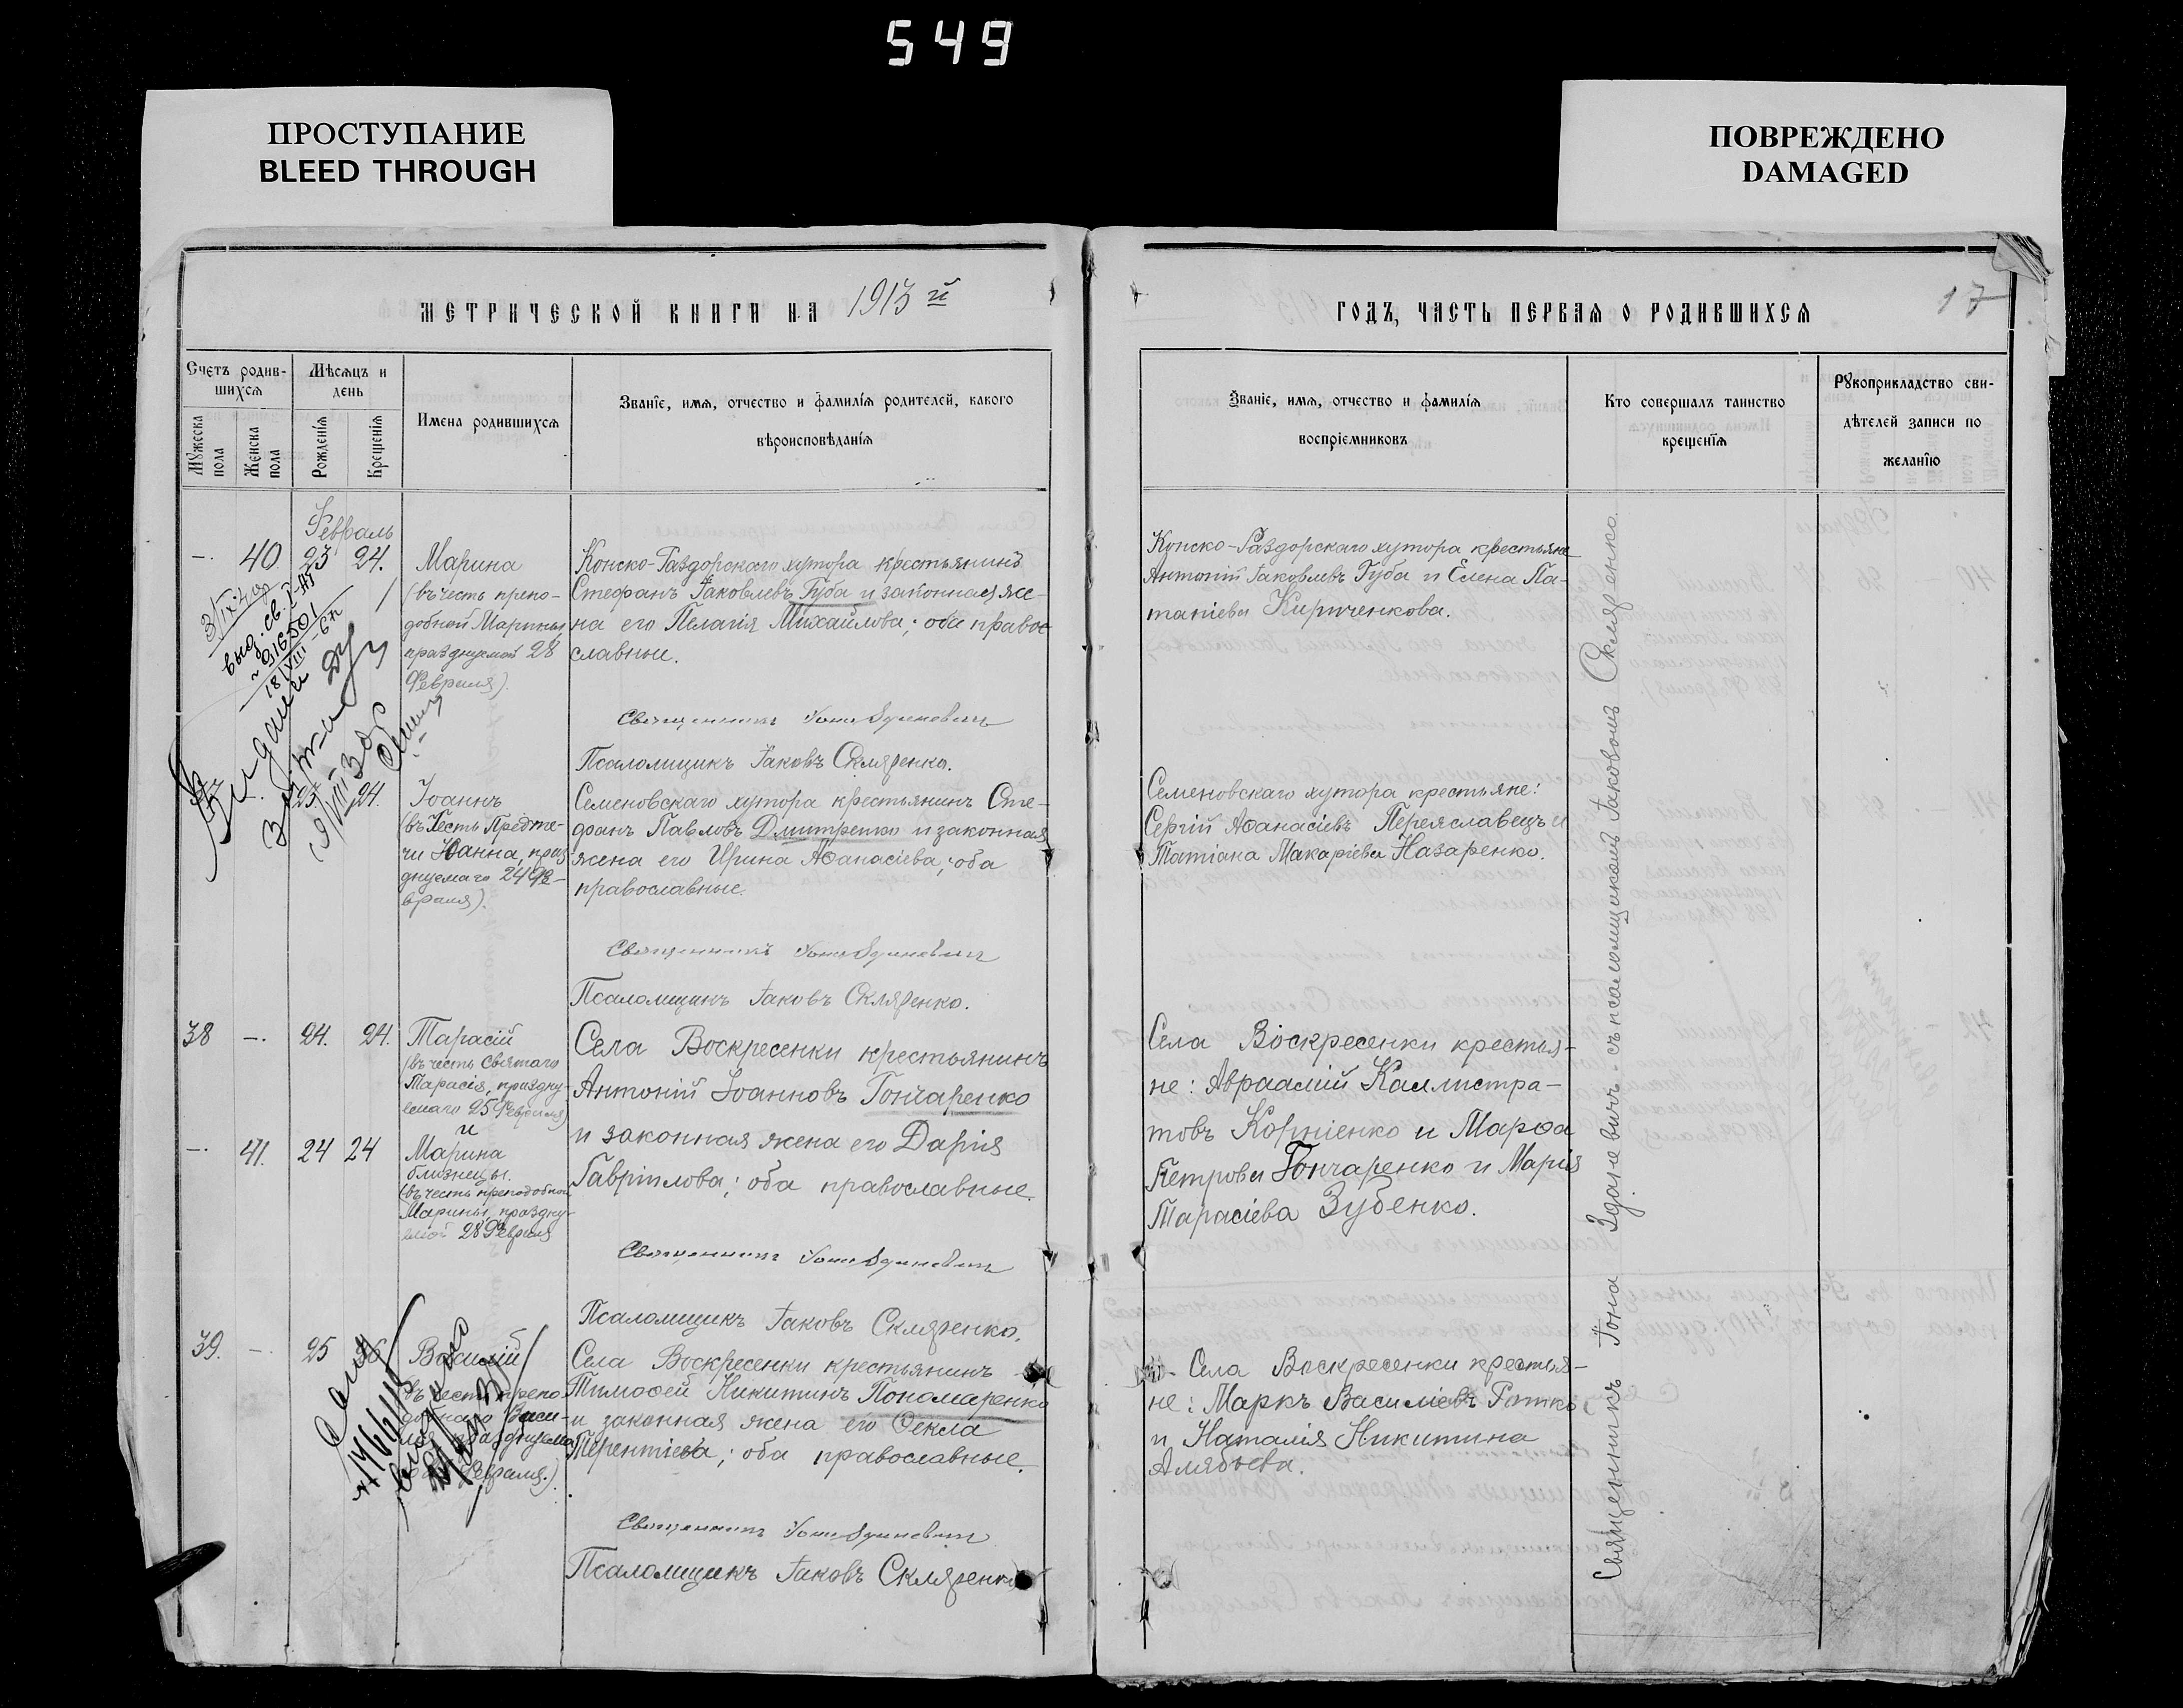 549
ПРОСТУПАНИЕ
BLEED THROUGH
ПОВРЕЖДЕНО
DAMAGED
МЕТРИЧЕСКОЙ КНИГИ НА 1913 й
Счетъ родив-
шихся
Мѣсяцъ и
день
Мужеска
пола
Женска
пола
Рожденія
Крещенія
Имена родившихся
Званіе, имя, отчество и фамилія родителей, какого
вѣроисповѣданія
Февраль
-. 40. 23 24.
Марина
(въ честь препо-
добной Марины,
празднуемой 28
Февраля).
Конско-Раздорскаго хутора крестьянинъ
Стефанъ Іаковлевъ Губа и законная же-
на его Пелагія Михайлова; оба право-
славные.
Священникъ Іона Зданевичъ
Псаломщикъ Іаковъ Скляренко.
3/IX-40
18/VIII
24.
Іоаннъ
(въ честь Предте-
чи Іоанна, праз
днуемаго 24 Фе-
враля).
Семеновскаго хутора крестьянинъ Сте-
фанъ Павловъ Дмитренко и законная
жена его Ирина Аѳанасіева; оба
православные.
Священникъ Іона Зданевичъ
Псаломщикъ Іаковъ Скляренко.
38 -. 24. 24.
Тарасій
(въ честь Святаго
Тарасія, праздну-
емаго 25 Февраля)
и
-. 41. 24 24
Марина
близнецы.
(въ честь преподобной
Марины, праздну-
емой 28 Февраля
Села Воскресенки крестьянинъ
Антоній Іоанновъ Гончаренко
и законная жена его Дарія
Гавріилова; оба православные.
Священникъ Іона Зданевичъ
Псаломщикъ Іаковъ Скляренко.
39. -. 25
Василій
въ честь препо-
добнаго Васи-
Февраля.)
Села Воскресенки крестьянинъ
Тимоѳей Никитинъ Пономаренко
и законная жена его Ѳекла
Терентіева; оба православные.
Священникъ Іона Зданевичъ
Псаломщикъ Іаковъ Скляренко
ГОДЪ, ЧАСТЬ ПЕРВАЯ О РОДИВШИХСЯ
17
Званіе, имя, отчество и фамилія
воспріемниковъ
Кто совершалъ таинство
крещенія
Рукоприкладство сви-
дѣтелей записи по
желанію
Конско-Раздорскаго хутора крестьяне
Антоній Іаковлевъ Губа и Елена Па-
таніева Кириченкова.
Семеновскаго хутора крестьяне:
Сергій Аѳанасіевъ Переяславецъ и
Татіана Макаріева Назаренко.
Села Воскресенки крестья-
не: Авраамій Каллистра-
товъ Корніенко и Марѳа
Петрова Гончаренко и Марія
Тарасіева Зубенко.
Села Воскресенки крестья-
не: Маркъ Василіевъ
и Наталія Никитина
Алябьева.
Священникъ Іона Зданевичъ съ псаломщикомъ Іаковомъ Скляренко.